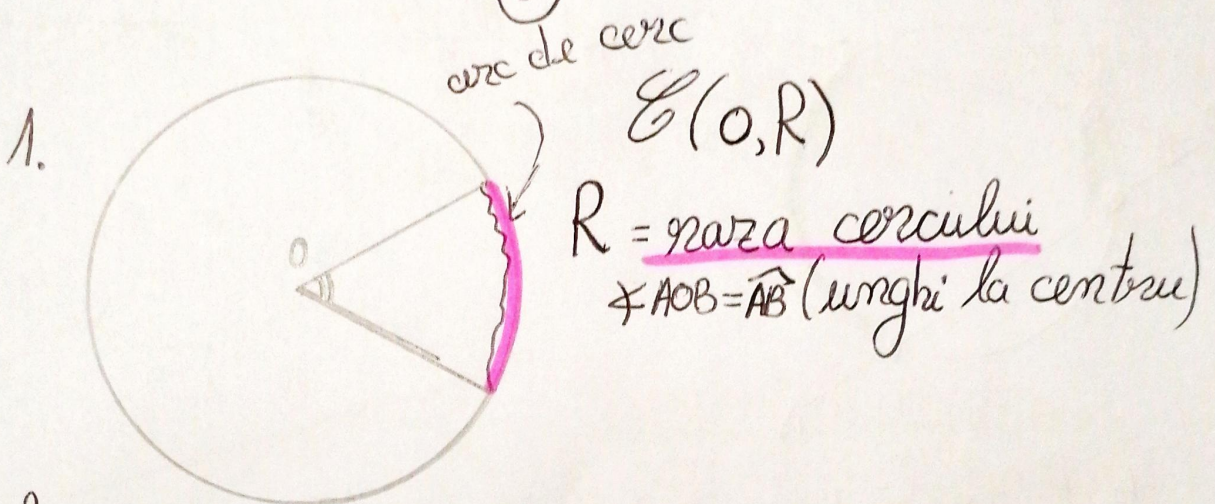 arc de cerc
1.
C(O,R)
O
R = raza cercului
∢AOB=A͡B (unghi la centru)